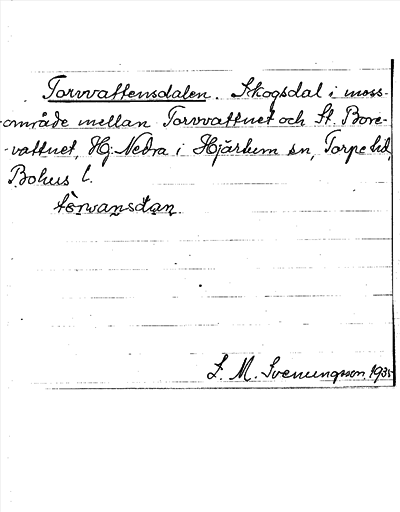 Torvvattensdalen. Skogsdal i moss-
område mellan Torvvattnet och St. Bore-
vattnet, Hg. Nedra i Hjärtum sn, Torpe hd,
Bohus l.
S. M. Svenungsson, 1935